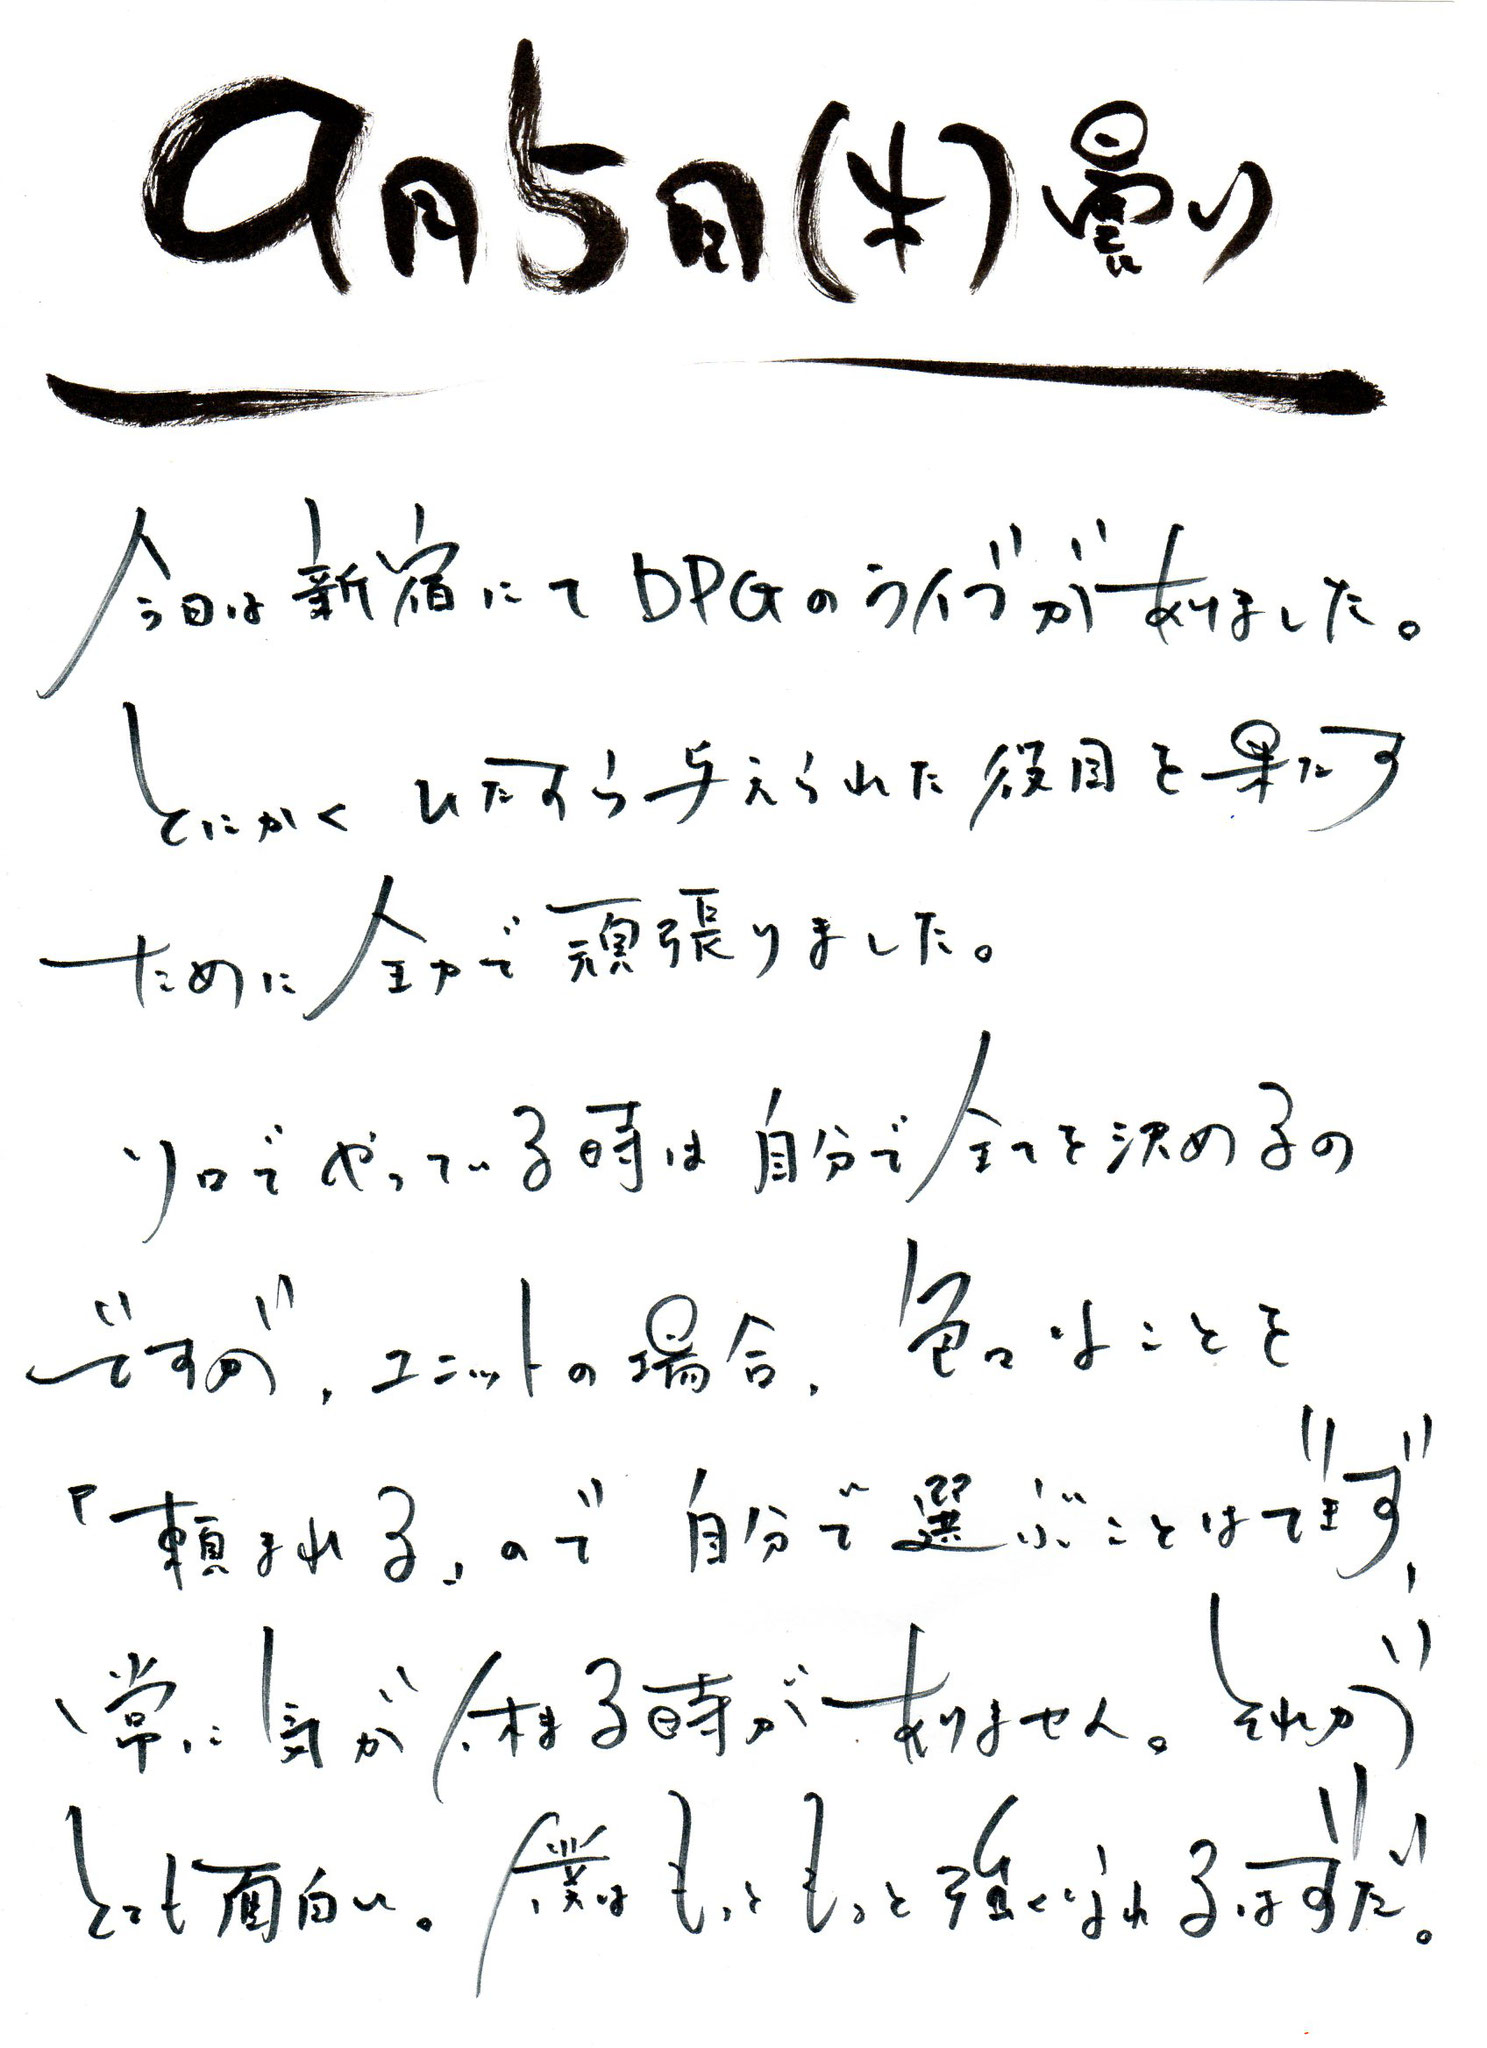 9月5日(木)曇り
今日は新宿にてDPGのライブがありました。
とにかくひたすら与えられた役目を果たす
ために全力で頑張りました。
ソロでやっている時は自分で全てを決めるの
ですが、ユニットの場合、色々なことを
「頼まれる」ので自分で選ぶことはできず、
常に気が休まる時がありません。それが
とても面白い。僕はもっともっと強くなれるはずだ。